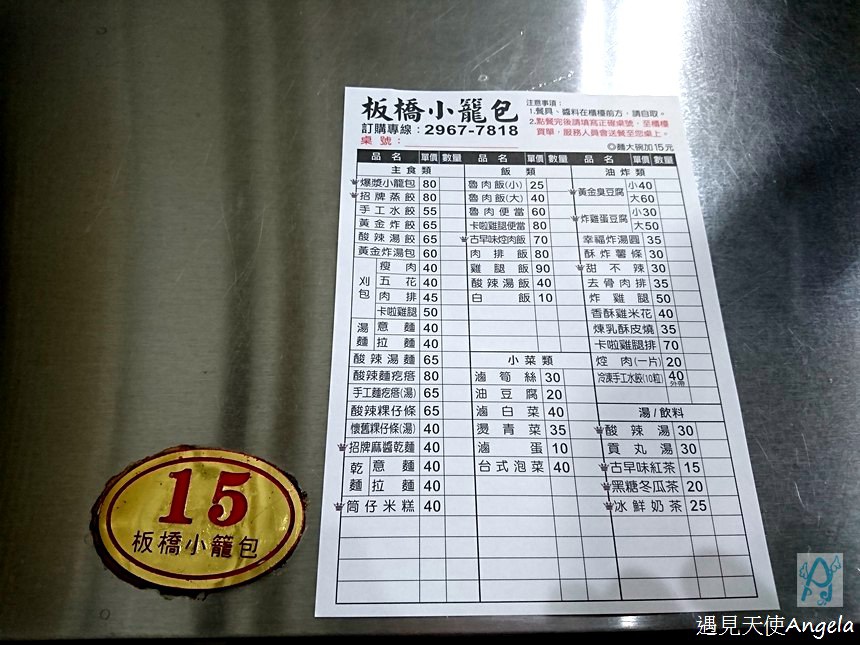 板橋小籠包
訂購專線：2967-7818
桌號：
注意事項：
1.餐具、醬料在櫃檯前方，請自取。
2.點餐完後請填寫正確桌號，至櫃檯
買單，服務人員會送餐至您桌上。
◎麵大碗加15元
品名 單價 數量
主食類
爆漿小籠包 80
招牌蒸餃 80
手工水餃 55
黃金炸餃 65
酸辣湯餃 65
黃金炸湯包 60
刈包
瘦肉 40
五花 40
肉排 45
卡啦雞腿 50
湯麵
意麵 40
拉麵 40
酸辣湯麵 65
酸辣麵疙瘩 80
手工麵疙瘩(湯) 65
酸辣粿仔條 65
懷舊粿仔條(湯) 40
招牌麻醬乾麵 40
乾麵
意麵 40
拉麵 40
筒仔米糕 40
品名 單價 數量
飯類
魯肉飯(小) 25
魯肉飯(大) 40
魯肉便當 60
卡啦雞腿便當 80
古早味焢肉飯 70
肉排飯 80
雞腿飯 90
酸辣湯飯 40
白飯 10
小菜類
滷筍絲 30
油豆腐 20
滷白菜 40
燙青菜 35
滷蛋 10
台式泡菜 40
品名 單價 數量
油炸類
黃金臭豆腐 小40
大60
炸雞蛋豆腐 小30
大50
幸福炸湯圓 35
酥炸薯條 30
甜不辣 30
去骨肉排 35
炸雞腿 50
香酥雞米花 40
煉乳酥皮燒 35
卡啦雞腿排 70
焢肉(一片) 20
冷凍手工水餃(10粒) 40
外帶
湯/飲料
酸辣湯 30
貢丸湯 30
古早味紅茶 15
黑糖冬瓜茶 20
冰鮮奶茶 25
15
板橋小籠包
遇見天使Angela